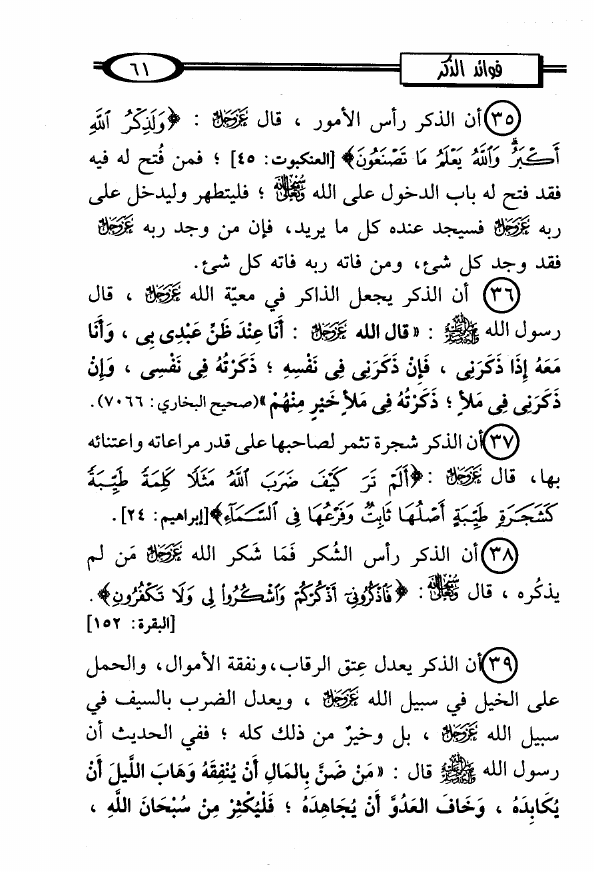 فوائد الذكر
٦١
٣٥ أن الذكر رأس الأمور ، قال عَزَّوَجَلَّ : ﴿وَلَذِكْرُ اللَّهِ
أَكْبَرُ وَاللَّهُ يَعْلَمُ مَا تَصْنَعُونَ﴾ [العنكبوت: ٤٥] ؛ فمن فُتح له فيه
فقد فتح له باب الدخول على الله سُبْحَانَهُ وَتَعَالَى ؛ فليتطهر وليدخل على
ربه عَزَّوَجَلَّ فسيجد عنده كل ما يريد، فإن من وجد ربه عَزَّوَجَلَّ
فقد وجد كل شئ، ومن فاته ربه فاته كل شئ.
٣٦ أن الذكر يجعل الذاكر في معيّة الله عَزَّوَجَلَّ ، قال
رسول الله ﷺ : «قال الله عَزَّوَجَلَّ : أَنَا عِنْدَ ظَنِّ عَبْدِى بِى ، وَأَنَا
مَعَهُ إِذَا ذَكَرَنِى ، فَإِنْ ذَكَرَنِى فِى نَفْسِهِ ؛ ذَكَرْتُهُ فِى نَفْسِى ، وَإِنْ
ذَكَرَنِى فِى مَلأٍ ؛ ذَكَرْتُهُ فِى مَلأٍ خَيْرٍ مِنْهُمْ»(صحيح البخاري: ٧٠٦٦).
٣٧ أن الذكر شجرة تثمر لصاحبها على قدر مراعاته واعتنائه
بها، قال عَزَّوَجَلَّ : ﴿أَلَمْ تَرَ كَيْفَ ضَرَبَ اللَّهُ مَثَلًا كَلِمَةً طَيِّبَةً
كَشَجَرَةٍ طَيِّبَةٍ أَصْلُهَا ثَابِتٌ وَفَرْعُهَا فِى السَّمَاءِ﴾[إبراهيم: ٢٤].
٣٨ أن الذكر رأس الشُكر فَمَا شَكر الله عَزَّوَجَلَّ مَن لم
يذكُره ، قال سُبْحَانَهُ وَتَعَالَى : ﴿فَاذْكُرُونِىٓ أَذْكُرْكُمْ وَاشْكُرُوا لِى وَلَا تَكْفُرُونِ﴾.
[البقرة: ١٥٢]
٣٩ أن الذكر يعدل عِتق الرقاب،ونفقة الأموال، والحمل
على الخيل في سبيل الله عَزَّوَجَلَّ ، ويعدل الضرب بالسيف في
سبيل الله عَزَّوَجَلَّ ، بل وخيرٌ من ذلك كله ؛ ففي الحديث أن
رسول الله ﷺ قال : «مَنْ ضَنَّ بِالمَالِ أَنْ يُنْفِقَهُ وَهَابَ اللَّيلَ أَنْ
يُكَابِدَهُ ، وَخَافَ العَدُوَّ أَنْ يُجَاهِدَهُ ؛ فَلْيُكْثِرْ مِنْ سُبْحَانَ اللَّهِ ،